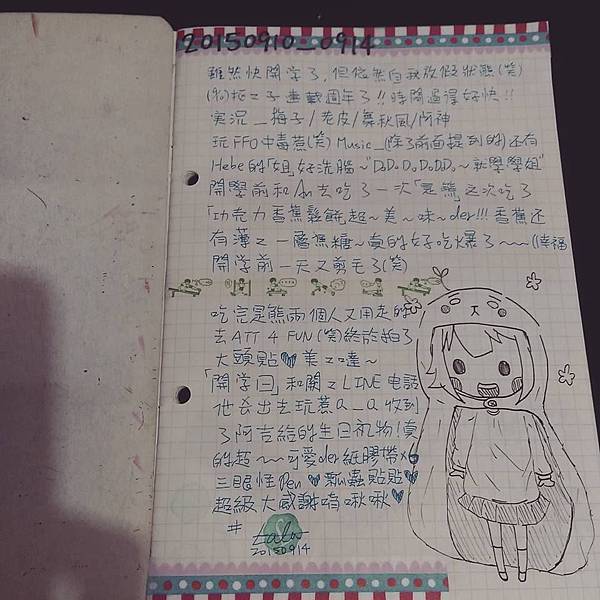 20150910_0914
雖然快開學了，但依然自我放假狀態(笑)
連載週年了!!時間過得好快!!
実況_梅子/老皮/舞秋風/阿神
玩FFO中毒惹(笑) Music_(除了前面提到的)還有
Hebe的「姐」好洗腦~"DoDoDoDoDo~就學學姐"
開學前和An去吃了一次「是熊」這次吃了
「巧克力香蕉鬆餅」超~美~味~der!!!香蕉還
有薄ㄛ一層焦糖~真的好吃爆了~~~((幸福
開學前一天又剪毛了(笑)
吃完是熊兩個人又用走的
去ATT 4 FUN(笑)終於拍了
大頭貼♥美ㄛ噠~
「開學日」和關ㄛLINE電話
他去出去玩惹Q_Q收到
了阿吉給的生日礼物!真
的超~~~可愛der紙膠帶x6
三眼怪Pen♥瓢蟲貼貼♥
超級大感謝唷啾啾♥
#
20150914